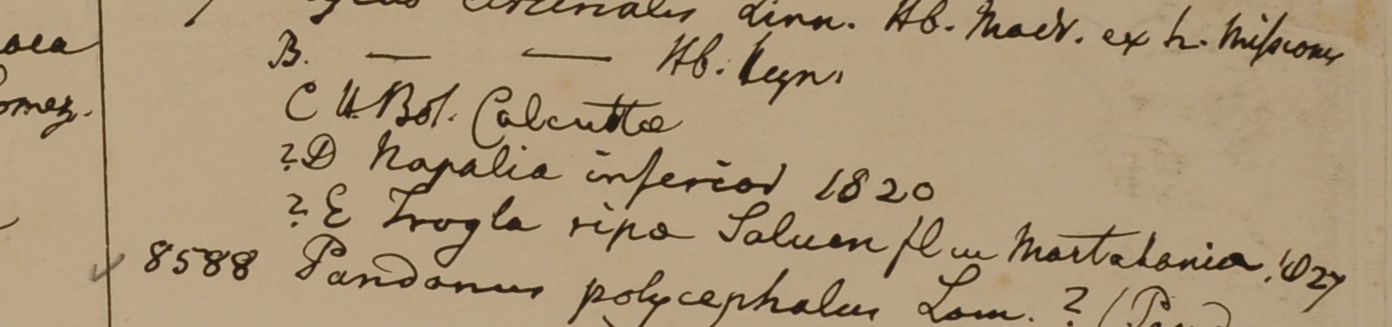 circinalis Linn. Hb. Madr. ex h. Missionis
B. — — Hb. Heyn.
C H. Bot. Calcuttæ
?D Napalia inferior 1820
?E Trogla ripa Saluen fl in Martabania, 1827
8588 Pandanus polycephalus Lam. ? (Pand
omez.